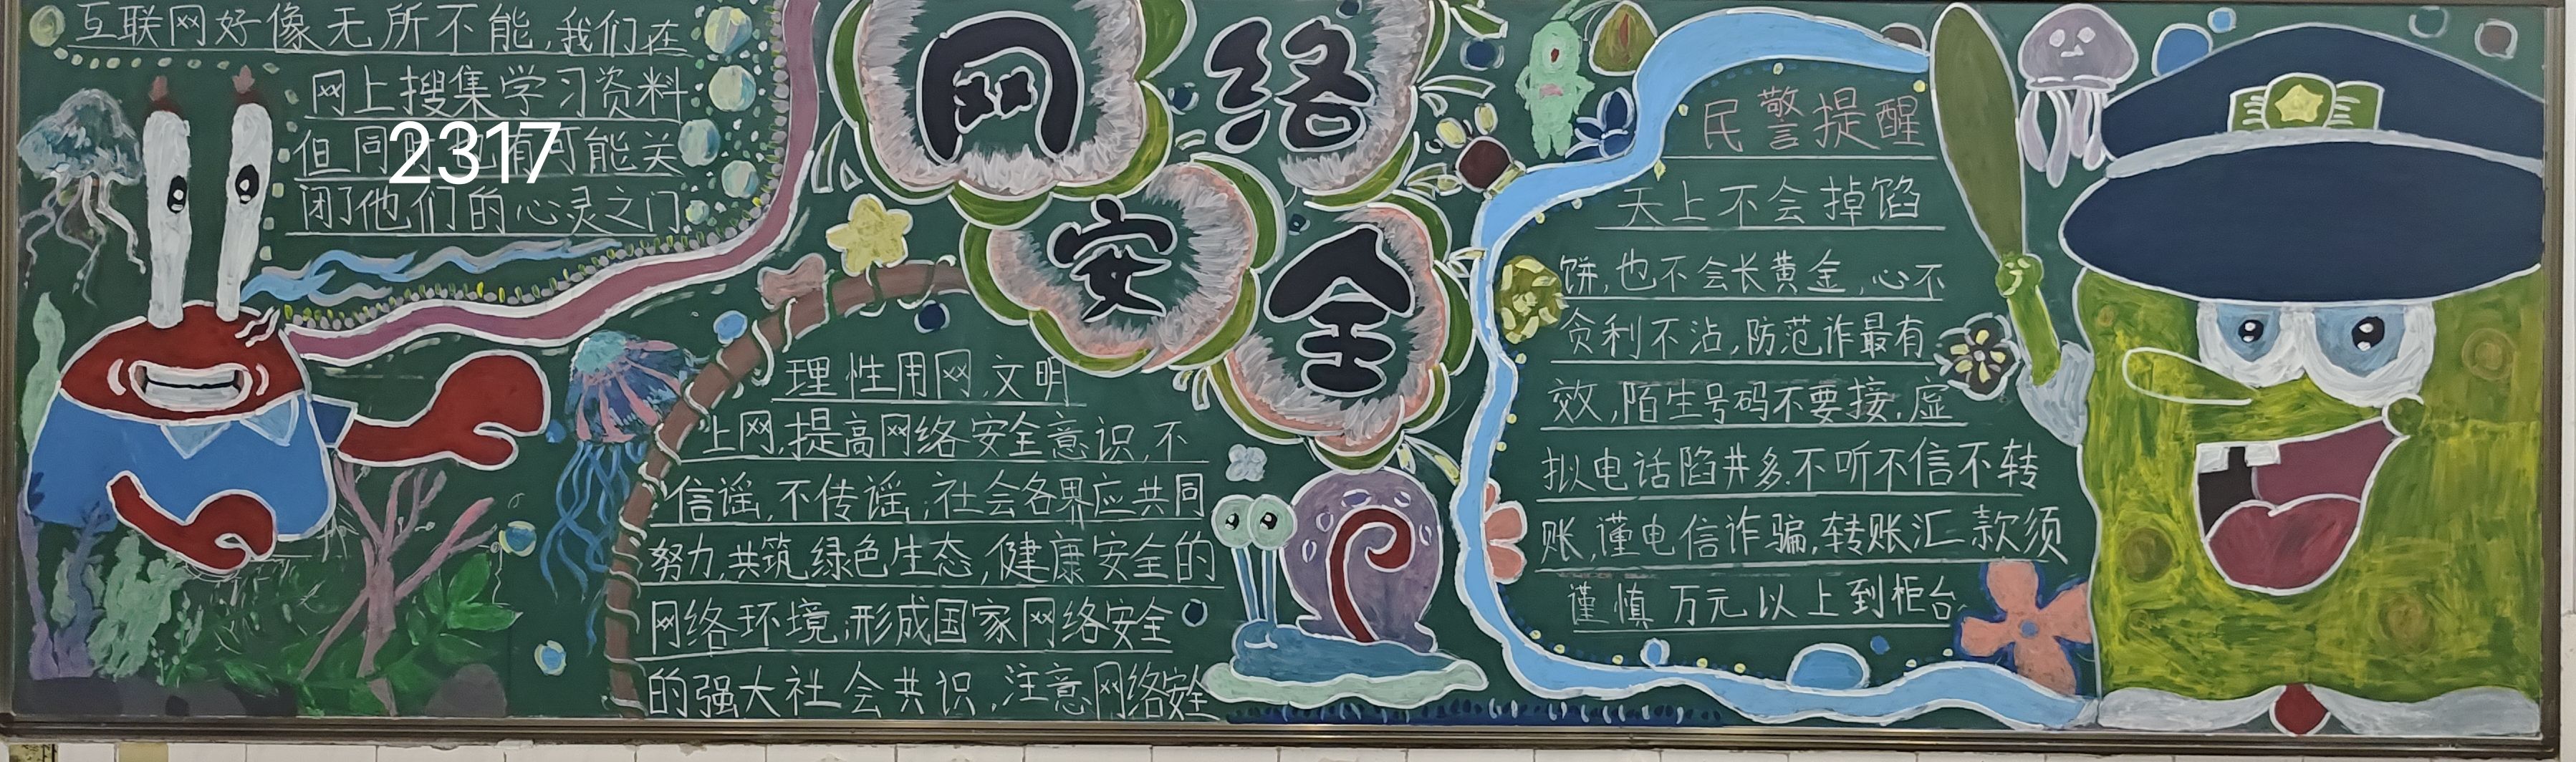 互联网好像无所不能,我们在
网上搜集学习资料
但同时也有可能关
闭了他们的心灵之门
2317
网络
安全
理性用网,文明
上网,提高网络安全意识,不
信谣,不传谣;社会各界应共同
努力,共筑绿色生态,健康安全的
网络环境,形成国家网络安全
的强大社会共识,注意网络安全
民警提醒
天上不会掉馅
饼,也不会长黄金,心不
贪利不沾,防范诈最有
效,陌生号码不要接,虚
拟电话陷井多,不听不信不转
账,谨电信诈骗,转账汇款须
谨慎万元以上到柜台